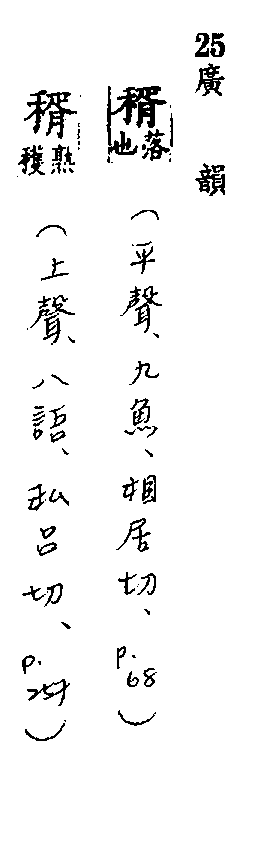 25廣韻
稰落也（平聲、九魚、相居切、p.68）
稰熟穫（上聲、八語、私呂切、p. ）